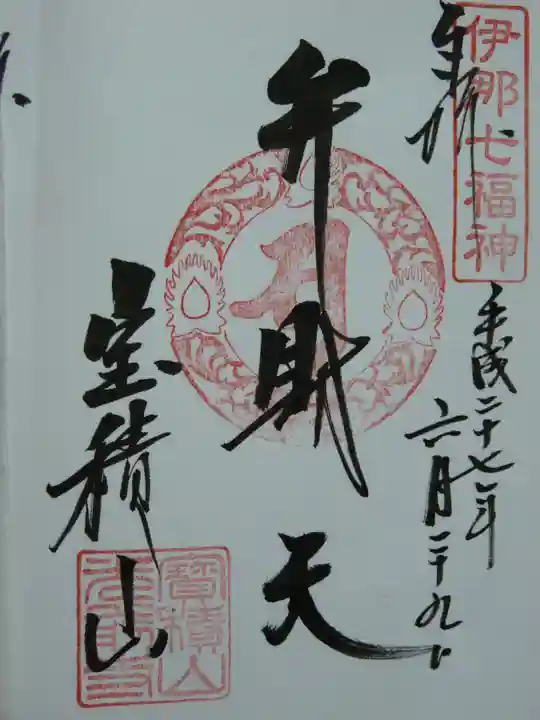 伊那七福神
奉拝
平成二十七年
六月二十九日
弁財天
宝積山
寶積山
光前寺